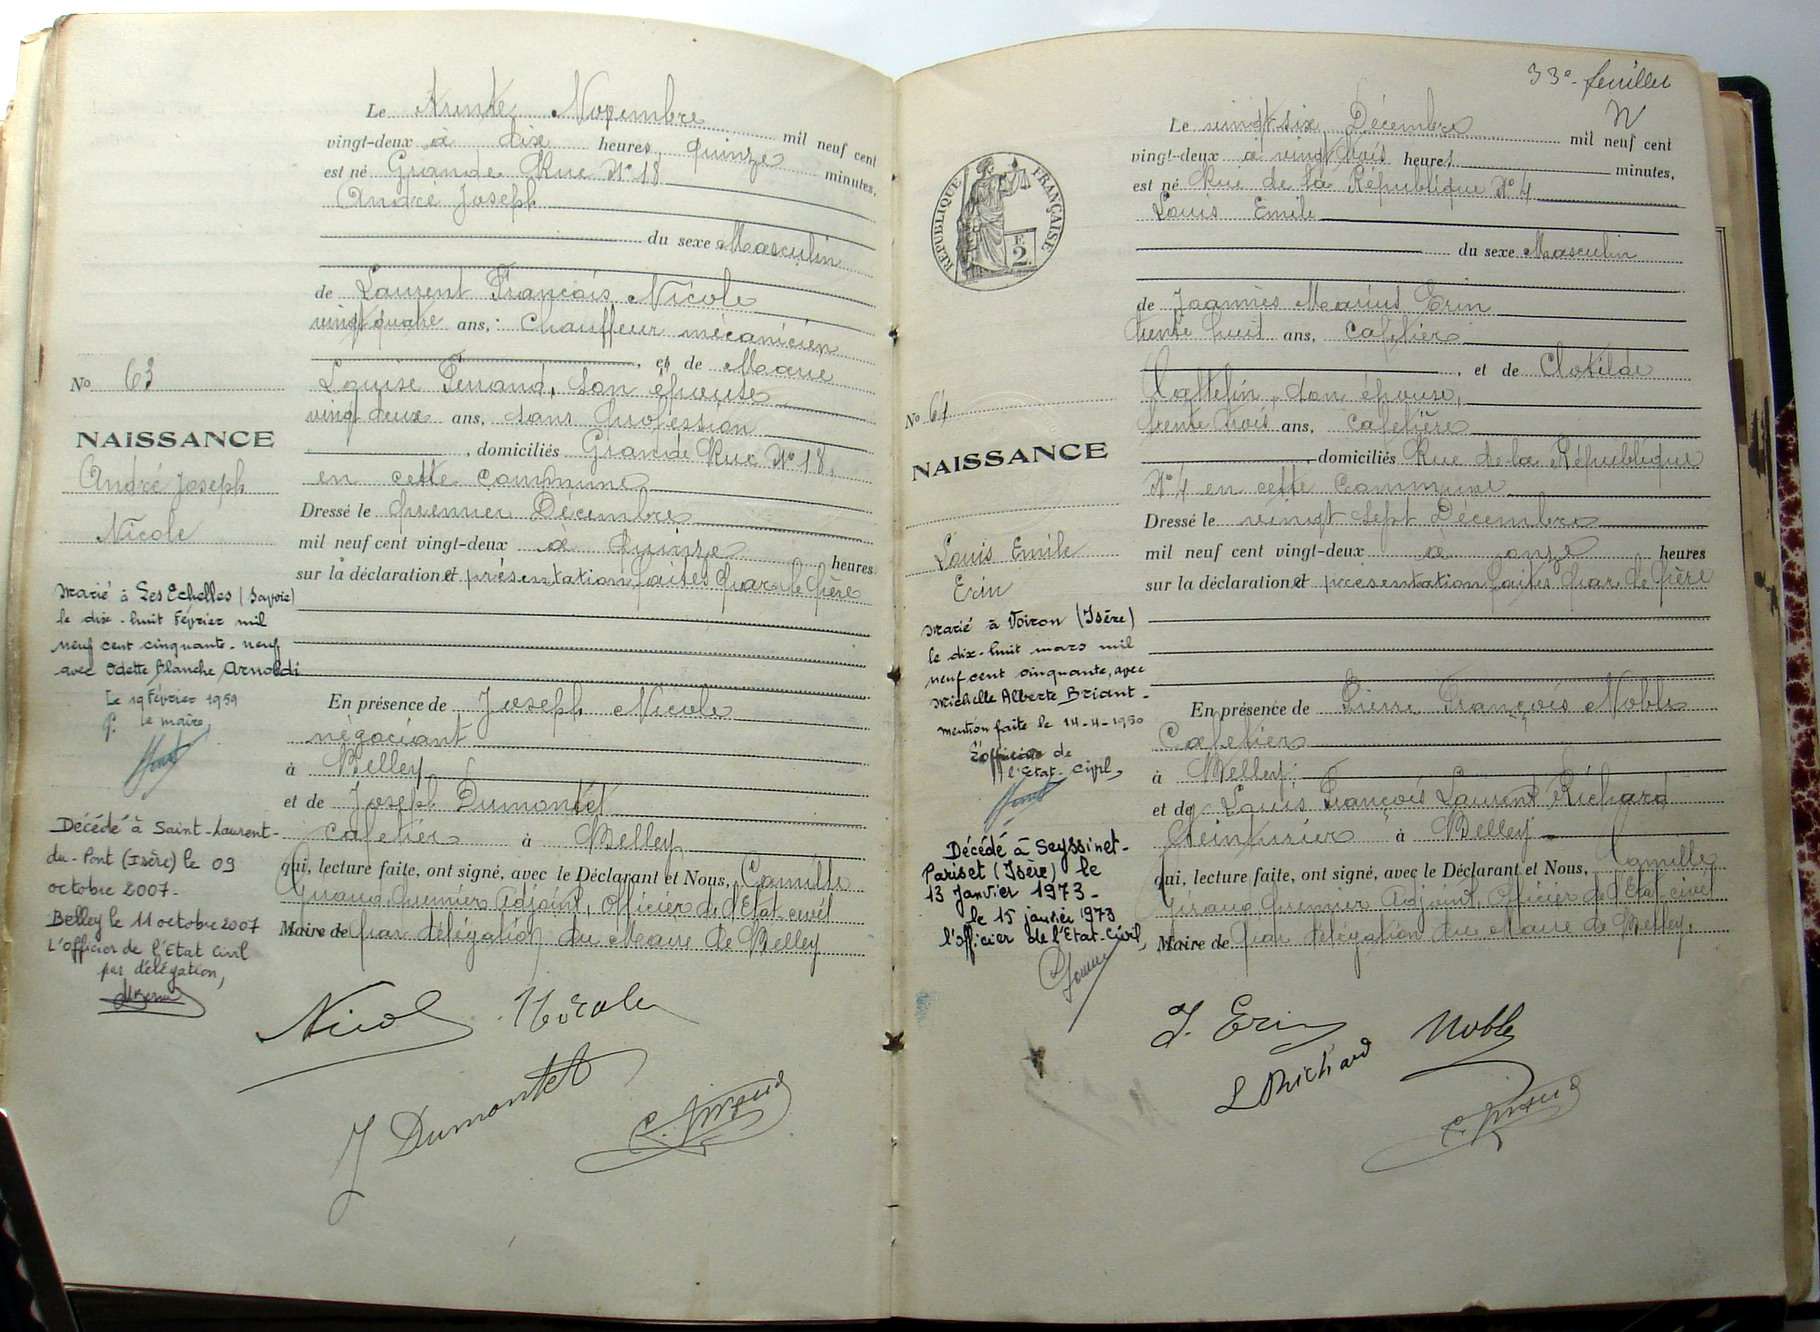 Le trente Novembre mil neuf cent
vingt-deux à dix heures quinze minutes,
est né Grande Rue N° 18
André Joseph
du sexe Masculin
de Laurent François Nicole
vingt quatre ans, chauffeur mécanicien
, et de Marie
Louise Ferrand, son épouse
vingt deux ans, sans profession
, domiciliés Grande Rue N° 18,
en cette commune
Dressé le premier Décembre
mil neuf cent vingt-deux à quinze heures
sur la déclaration et présentation faites par le père
En présence de Joseph Nicole
négociant
à Belley
et de Joseph Dumontet
cafetier à Belley
qui, lecture faite, ont signé, avec le Déclarant et Nous, Camille
Giraud premier Adjoint, Officier de l'Etat civil
Maire de par délégation du Maire de Belley
No 63
NAISSANCE
André Joseph
Nicole
Marié à Les Echelles (Savoie)
le dix-huit Février mil
neuf cent cinquante-neuf
avec Odette Blanche Arnoldi
Le 19 Février 1959
P. le maire,
Décédé à Saint-Laurent-
du-Pont (Isère) le 09
octobre 2007-
Belley le 11 octobre 2007
L'Officier de l'Etat Civil
par délégation,
Nicole Nicole
J Dumontet
C. Giraud
33e feuillet
N
Le vingt six Décembre mil neuf cent
vingt-deux à vingt trois heures minutes,
est né Rue de la République N° 4
Louis Emile
du sexe Masculin
de Joannès Marius Erin
trente huit ans, cafetier
, et de Clotilde
son épouse,
trente trois ans, cafetière
, domiciliés Rue de la République
N° 4 en cette commune
Dressé le vingt sept Décembre
mil neuf cent vingt-deux à onze heures
sur la déclaration et présentation faites par le père
En présence de Pierre François Noble
Cafetier
à Belley
et de Louis François Laurent Richard
teinturier à Belley
qui, lecture faite, ont signé, avec le Déclarant et Nous, Camille
Giraud premier Adjoint, Officier de l'Etat civil
Maire de par délégation du Maire de Belley.
RÉPUBLIQUE FRANÇAISE
E
2
No 64
NAISSANCE
Louis Emile
Erin
Marié à Voiron (Isère)
le dix-huit mars mil
neuf cent cinquante, avec
Michelle Alberte Briant-
mention faite le 14-4-1950
L'officier de
l'Etat-Civil,
Décédé à Seyssinet-
Pariset (Isère) le
13 Janvier 1973-
le 15 janvier 1973
l'officier de l'Etat-Civil,
J. Erin Noble
L Richard
C. Giraud